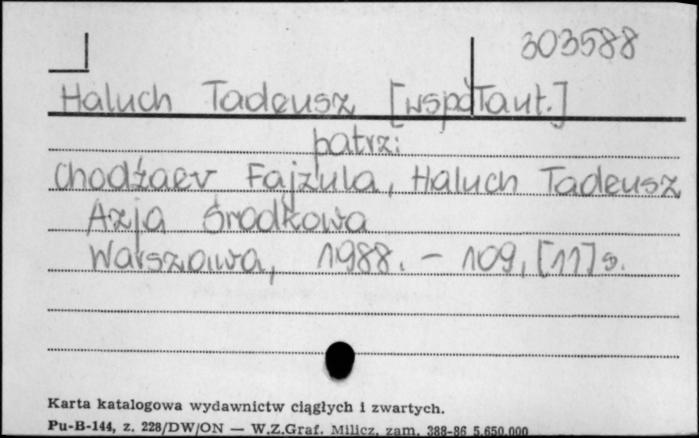 303588
Haluch Tadeusz [współaut.]
patrz:
Chodżaev Fajzula, Haluch Tadeusz
Azja Środkowa
Warszawa, 1988. - 109, [11] s.
Karta katalogowa wydawnictw ciągłych i zwartych.
Pu-B-144, z. 228/DW/ON — W.Z.Graf. Milicz, zam. 388-86 5.650.000